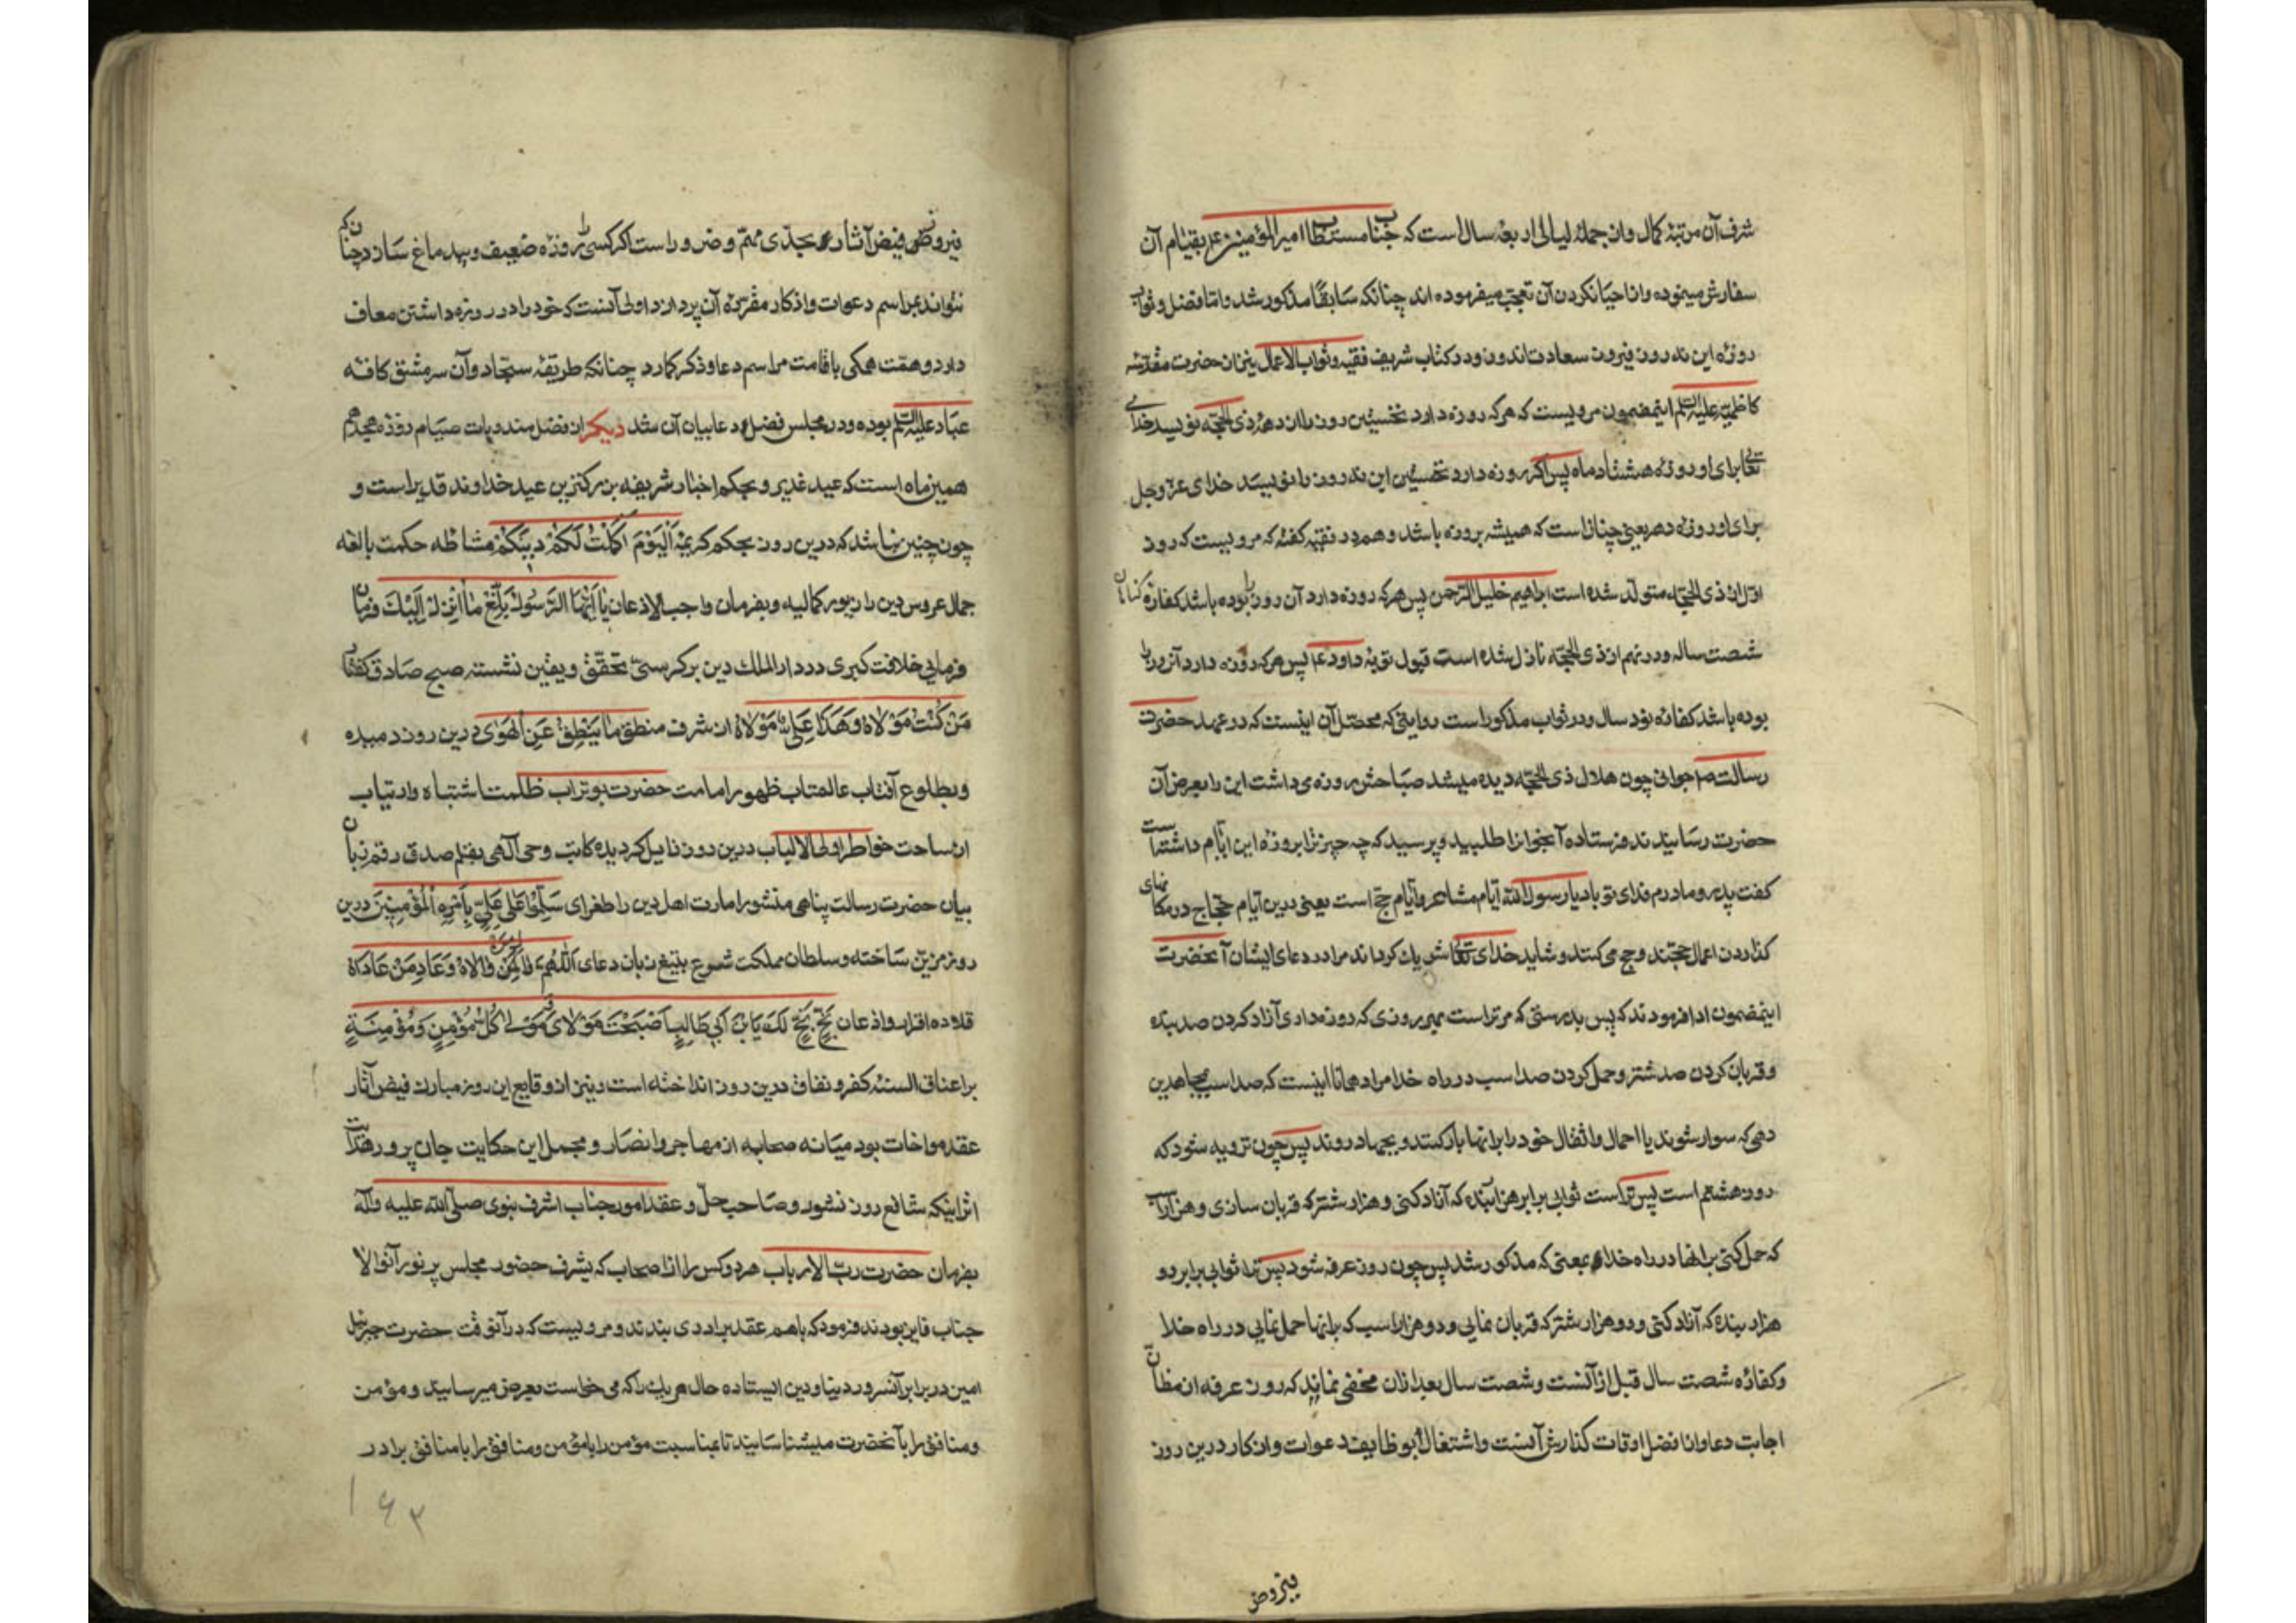 شرف آن مرتبهٔ کمال وان جملهٔ لیالی اربعهٔ سال است که جناب مستطاب امیر المؤمنین ع بقیام آن
سفارش مینموده واز احیا نکردن آن تعجب میفرموده اند چنانکه سابقًا مذکور شد واما فضل وثواب
روزهٔ این نه روز فیروز سعادت اندوز ودر کتاب شریف فقیه وثواب الاعمال نیز از حضرت مقدسهٔ
کاظمیه علیه السلم اینمضمون مرویست که هرکه روزه دارد نخستین روز را از دههٔ ذی الحجه نویسد خدای
تعالی برای او روزهٔ هشتاد ماه پس اکر روزه دارد تخستین این نه روز را نویسد خدای عزّ وجل
برای او روزهٔ دهر یعنی چنانست که همیشه بروزه باشد وهم در فقیه کفته که مرویست که روز
اول از ذی الحجه متولد شده است ابراهیم خلیل الرحمن پس هرکه روزه دارد آن روز را بوده باشد کفارهٔ کناهان
شصت ساله ودر نهم از ذی الحجه نازل شده است قبول توبهٔ داود ع پس هرکه روزه دارد آنروز را
بوده باشد کفارهٔ نود سال ودر ثواب مذکور است روایتی که محصل آن اینست که در عهد حضرت
رسالت ص جوانی چون هلال ذی الحجه دیده میشد صباحش روزه می داشت این را بعرض آن
حضرت رسانیدند فرستاده آنجوانرا طلبید وپرسید که چه چیز ترا بروزه این ایّام داشته است
کفت پدر ومادرم فدای تو باد یا رسول الله ایّام مشاعر وایّام حج است یعنی درین ایّام حجّاج در مکانهای
کذاردن اعمال حجتند وحج می کنند وشاید خدای تعالی شریك کرداند مرا در دعای ایشان آنحضرت
اینمضمون ادا فرمودند که پس بدرستی که مر تراست بهر روزی که روزه داری آزاد کردن صد بنده
وقربان کردن صد شتر وحمل کردن صد اسب در راه خدا مراد همانا اینست که صد اسب بمجاهدین
دهی که سوار شوند یا احمال واثقال خود را برانها بار کنند وبجهاد روند پس چون ترویه شود که
روز هشتم است پس تراست ثوابی برابر هزار بنده که آزاد کنی وهزار شتر که قربان سازی وهزار اسب
که حمل کنی برانها در راه خدا بمعنی که مذکور شد پس چون روز عرفه شود پس ترا ثوابی برابر دو
هزار بنده که آزاد کنی ودو هزار شتر که قربان نمایی ودو هزار اسب که برانها حمل نمایی در راه خدا
وکفارهٔ شصت سال قبل از آنست وشصت سال بعد از ان مخفی نماند که روز عرفه از مظان
اجابت دعا واز افضل اوقات کذارش آنست واشتغال بوظایف دعوات واذکار درین روز
فیروز
فیروز فیض آثار بحدّی مهم وضرور است که اکر کسی را روزه ضعیف وبیدماغ سازد چنانکه
نتواند بمراسم دعوات واذکار مقررهٔ آن پردازد اولی آنست که خود را در روزه داشتن معاف
دارد وهمت همکی باقامت مراسم دعا وذکر کمارد چنانکه طریقهٔ سجّاد وآن سرمشق کافهٔ
عباد علیه السلم بوده ودر مجلس فضل دعا بیان آن شد دیکر از فضل مندوبات صیام روزهٔ هجدهم
همین ماه است که عید غدیر وبحکم اخبار شریفه بزرکترین عید خداوند قدیر است و
چون چنین نباشد که درین روز بحکم کریمهٔ اَلْیَوْمَ اَکْمَلْتُ لَکُمْ دِینَکُمْ مشاطهٔ حکمت بالغه
جمال عروس دین را زیور کمالیه وبفرمان واجب الاذعان یَا اَیُّهَا الرَّسُولُ بَلِّغْ مَا اُنْزِلَ اِلَیْكَ فرمان
فرمایی خلافت کبری در دار الملك دین برکرسیّ تحقق ویقین نشسته صبح صادق کفتار
مَنْ کُنْتُ مَوْلَاهُ وَهَذَا عَلِیٌّ مَوْلَاهُ از شرف منطق مَا یَنْطِقُ عَنِ الْهَوٰی درین روز دمیده
وبطلوع آفتاب عالمتاب ظهور امامت حضرت بوتراب ظلمت اشتباه وارتیاب
از ساحت خواطر اولی الالباب درین روز زایل کردیده کاتب وحی آلهی بقلم صدق رقم زبان
بیان حضرت رسالت پناهی منشور امارت اهل دین را طغرای سَلِّمُوا عَلٰی عَلِیٍّ بِاَمِیرَةِ الْمُؤْمِنِینَ درین
روز مزین ساخته وسلطان مملکت شرع بتیغ زبان دعای اَللّٰهُمَّ وَالِ مَنْ وَالَاهُ وَعَادِ مَنْ عَادَاهُ
قلاده اقرار واذعان بَخٍّ بَخٍّ لَكَ یَا بْنَ اَبِی طَالِبٍ اَصْبَحْتَ مَوْلَایَ وَمَوْلٰی کُلِّ مُؤْمِنٍ وَمُؤْمِنَةٍ
بر اعناق السنهٔ کفر ونفاق درین روز انداخته است ونیز از وقایع این روز مبارك فیض آثار
عقد مواخات بود میانه صحابه از مهاجر وانصار ومجمل این حکایت جان پرور
اثر اینکه شافع روز نشور وصاحب حلّ وعقد امور جناب اشرف نبوی صلّی الله علیه وآله
بفرمان حضرت ربّ الارباب هر دو کس را از اصحاب که بشرف حضور مجلس پر نور آنوالا
جناب فایز بودند فرمود که باهم عقد برادری بندند ومرویست که در آنوقت حضرت جبرئیل
امین در برابر آنسرور دنیا ودین ایستاده حال هر یك را که می خواست بعرض میرسانید ومؤمن
ومنافق را بآنحضرت میشناسانید تا بمناسبت مؤمن را با مؤمن ومنافق را با منافق برادر
۱۶۳